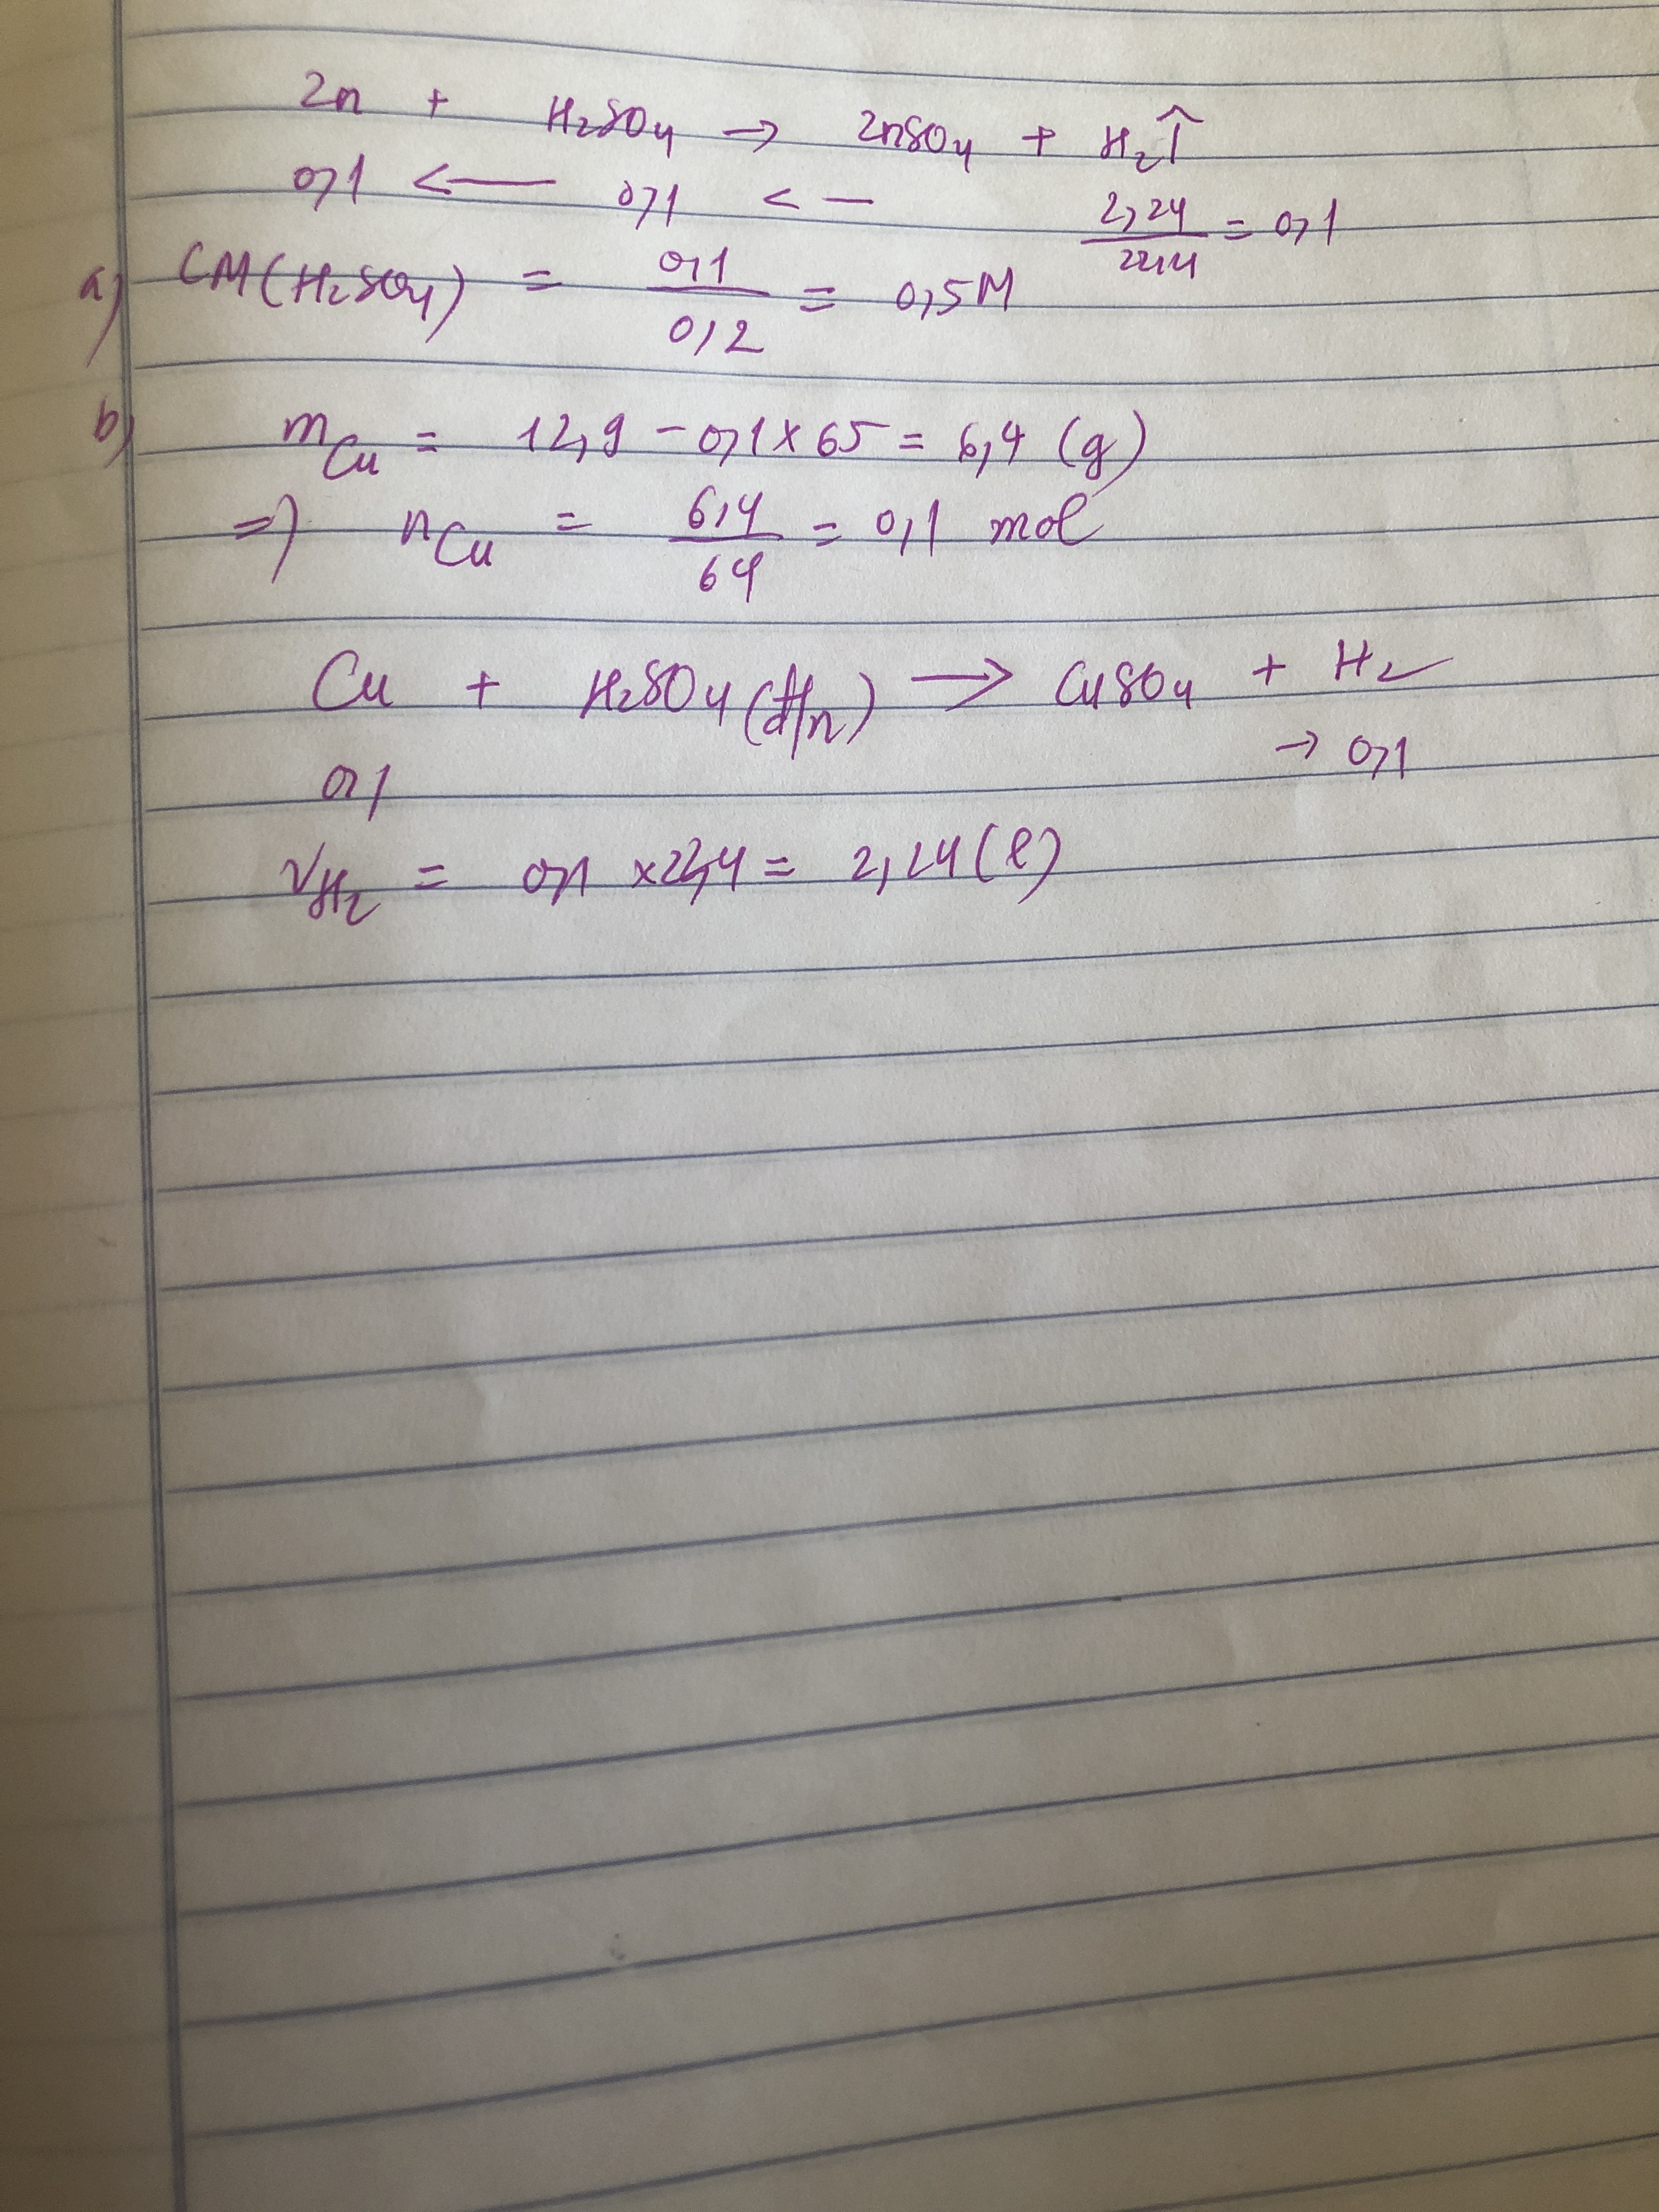 Zn + H₂SO₄ → ZnSO₄ + H₂↑
0,1 ← 0,1 ← 2,24/22,4 = 0,1
a) CM(H₂SO₄) = 0,1/0,2 = 0,5M
b) mCu = 12,9 - 0,1 x 65 = 6,4 (g)
=> nCu = 6,4/64 = 0,1 mol
Cu + H₂SO₄(đ/n) → CuSO₄ + H₂
0,1 → 0,1
VH₂ = 0,1 x 22,4 = 2,24 (l)